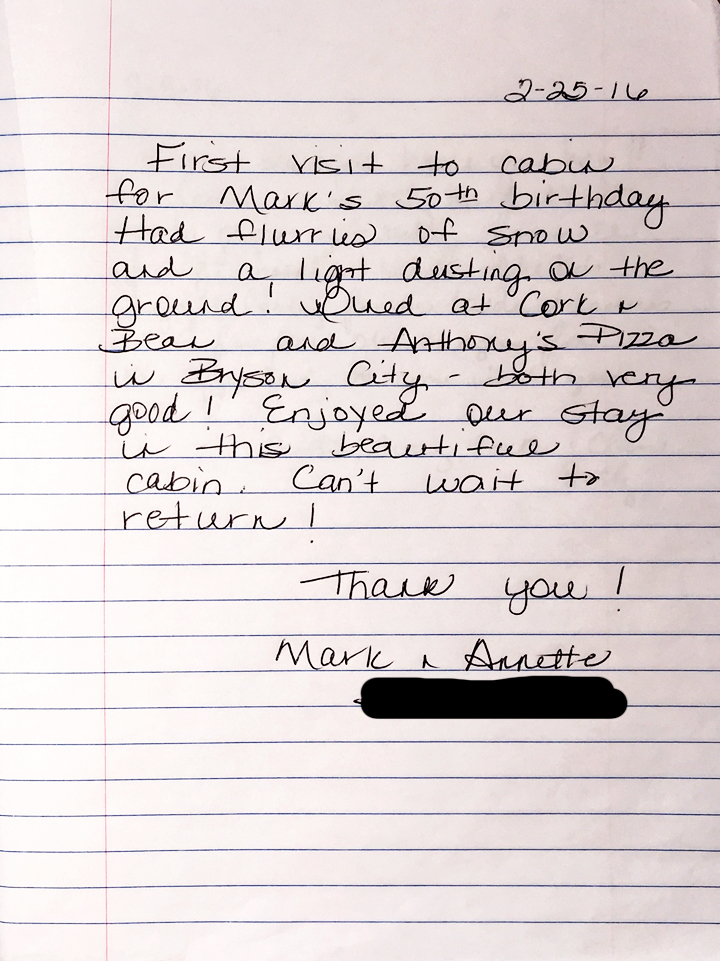 2-25-16
First visit to cabin
for Mark's 50th birthday
Had flurries of snow
and a light dusting on the
ground! Dined at Cork n
Bean and Anthony's Pizza
in Bryson City - both very
good! Enjoyed our stay
in this beautiful
cabin. Can't wait to
return!
Thank you!
Mark n Annette